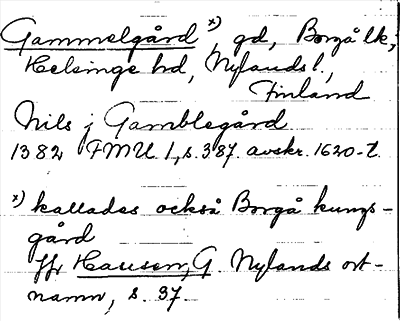 Gammelgård x), gd, Borgå lk,
Helsinge hd, Nylands l,
Finland
Nils j Gamblegård
1382 FMU 1, s. 387. avskr. 1620-t.
x) kallades också Borgå kungs-
gård
Jfr Hausen, G. Nylands ort-
namn, s. 37.